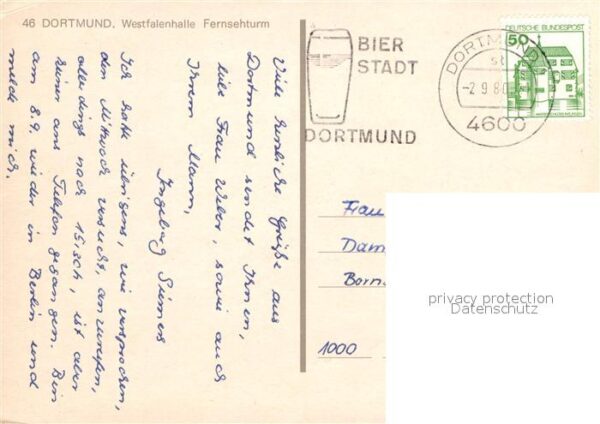 46 DORTMUND, Westfalenhalle Fernsehturm
Viele herzliche Grüße aus
Dortmund sendet Ihnen,
liebe Frau Weber, sowie auch
Ihrem Mann,
Ingeburg
Ich hatte übrigens, wie versprochen,
den Mittwoch versucht, anzurufen,
allerdings nach 15.30h, ist aber
keiner ans Telefon gegangen. Bin
am 8.9. wieder in Berlin und
melde mich.
BIER
STADT
DORTMUND
DORTMUND
-2.9.80
4600
DEUTSCHE BUNDESPOST
50
Frau
Dam
Born
1000
privacy protection
Datenschutz